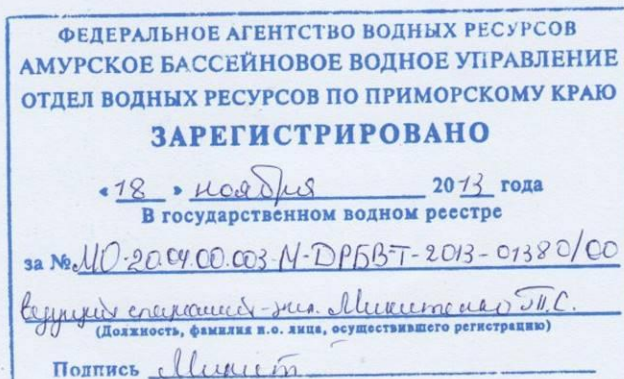 ФЕДЕРАЛЬНОЕ АГЕНТСТВО ВОДНЫХ РЕСУРСОВ
АМУРСКОЕ БАССЕЙНОВОЕ ВОДНОЕ УПРАВЛЕНИЕ
ОТДЕЛ ВОДНЫХ РЕСУРСОВ ПО ПРИМОРСКОМУ КРАЮ
ЗАРЕГИСТРИРОВАНО
«18» ноября 2013 года
В государственном водном реестре
за № МО-20.04.00.003-М-ДРБВ-Т-2013-01380/00
ведущий специалист-эксп. Микитенко Т.С.
(Должность, фамилия и.о. лица, осуществившего регистрацию)
Подпись